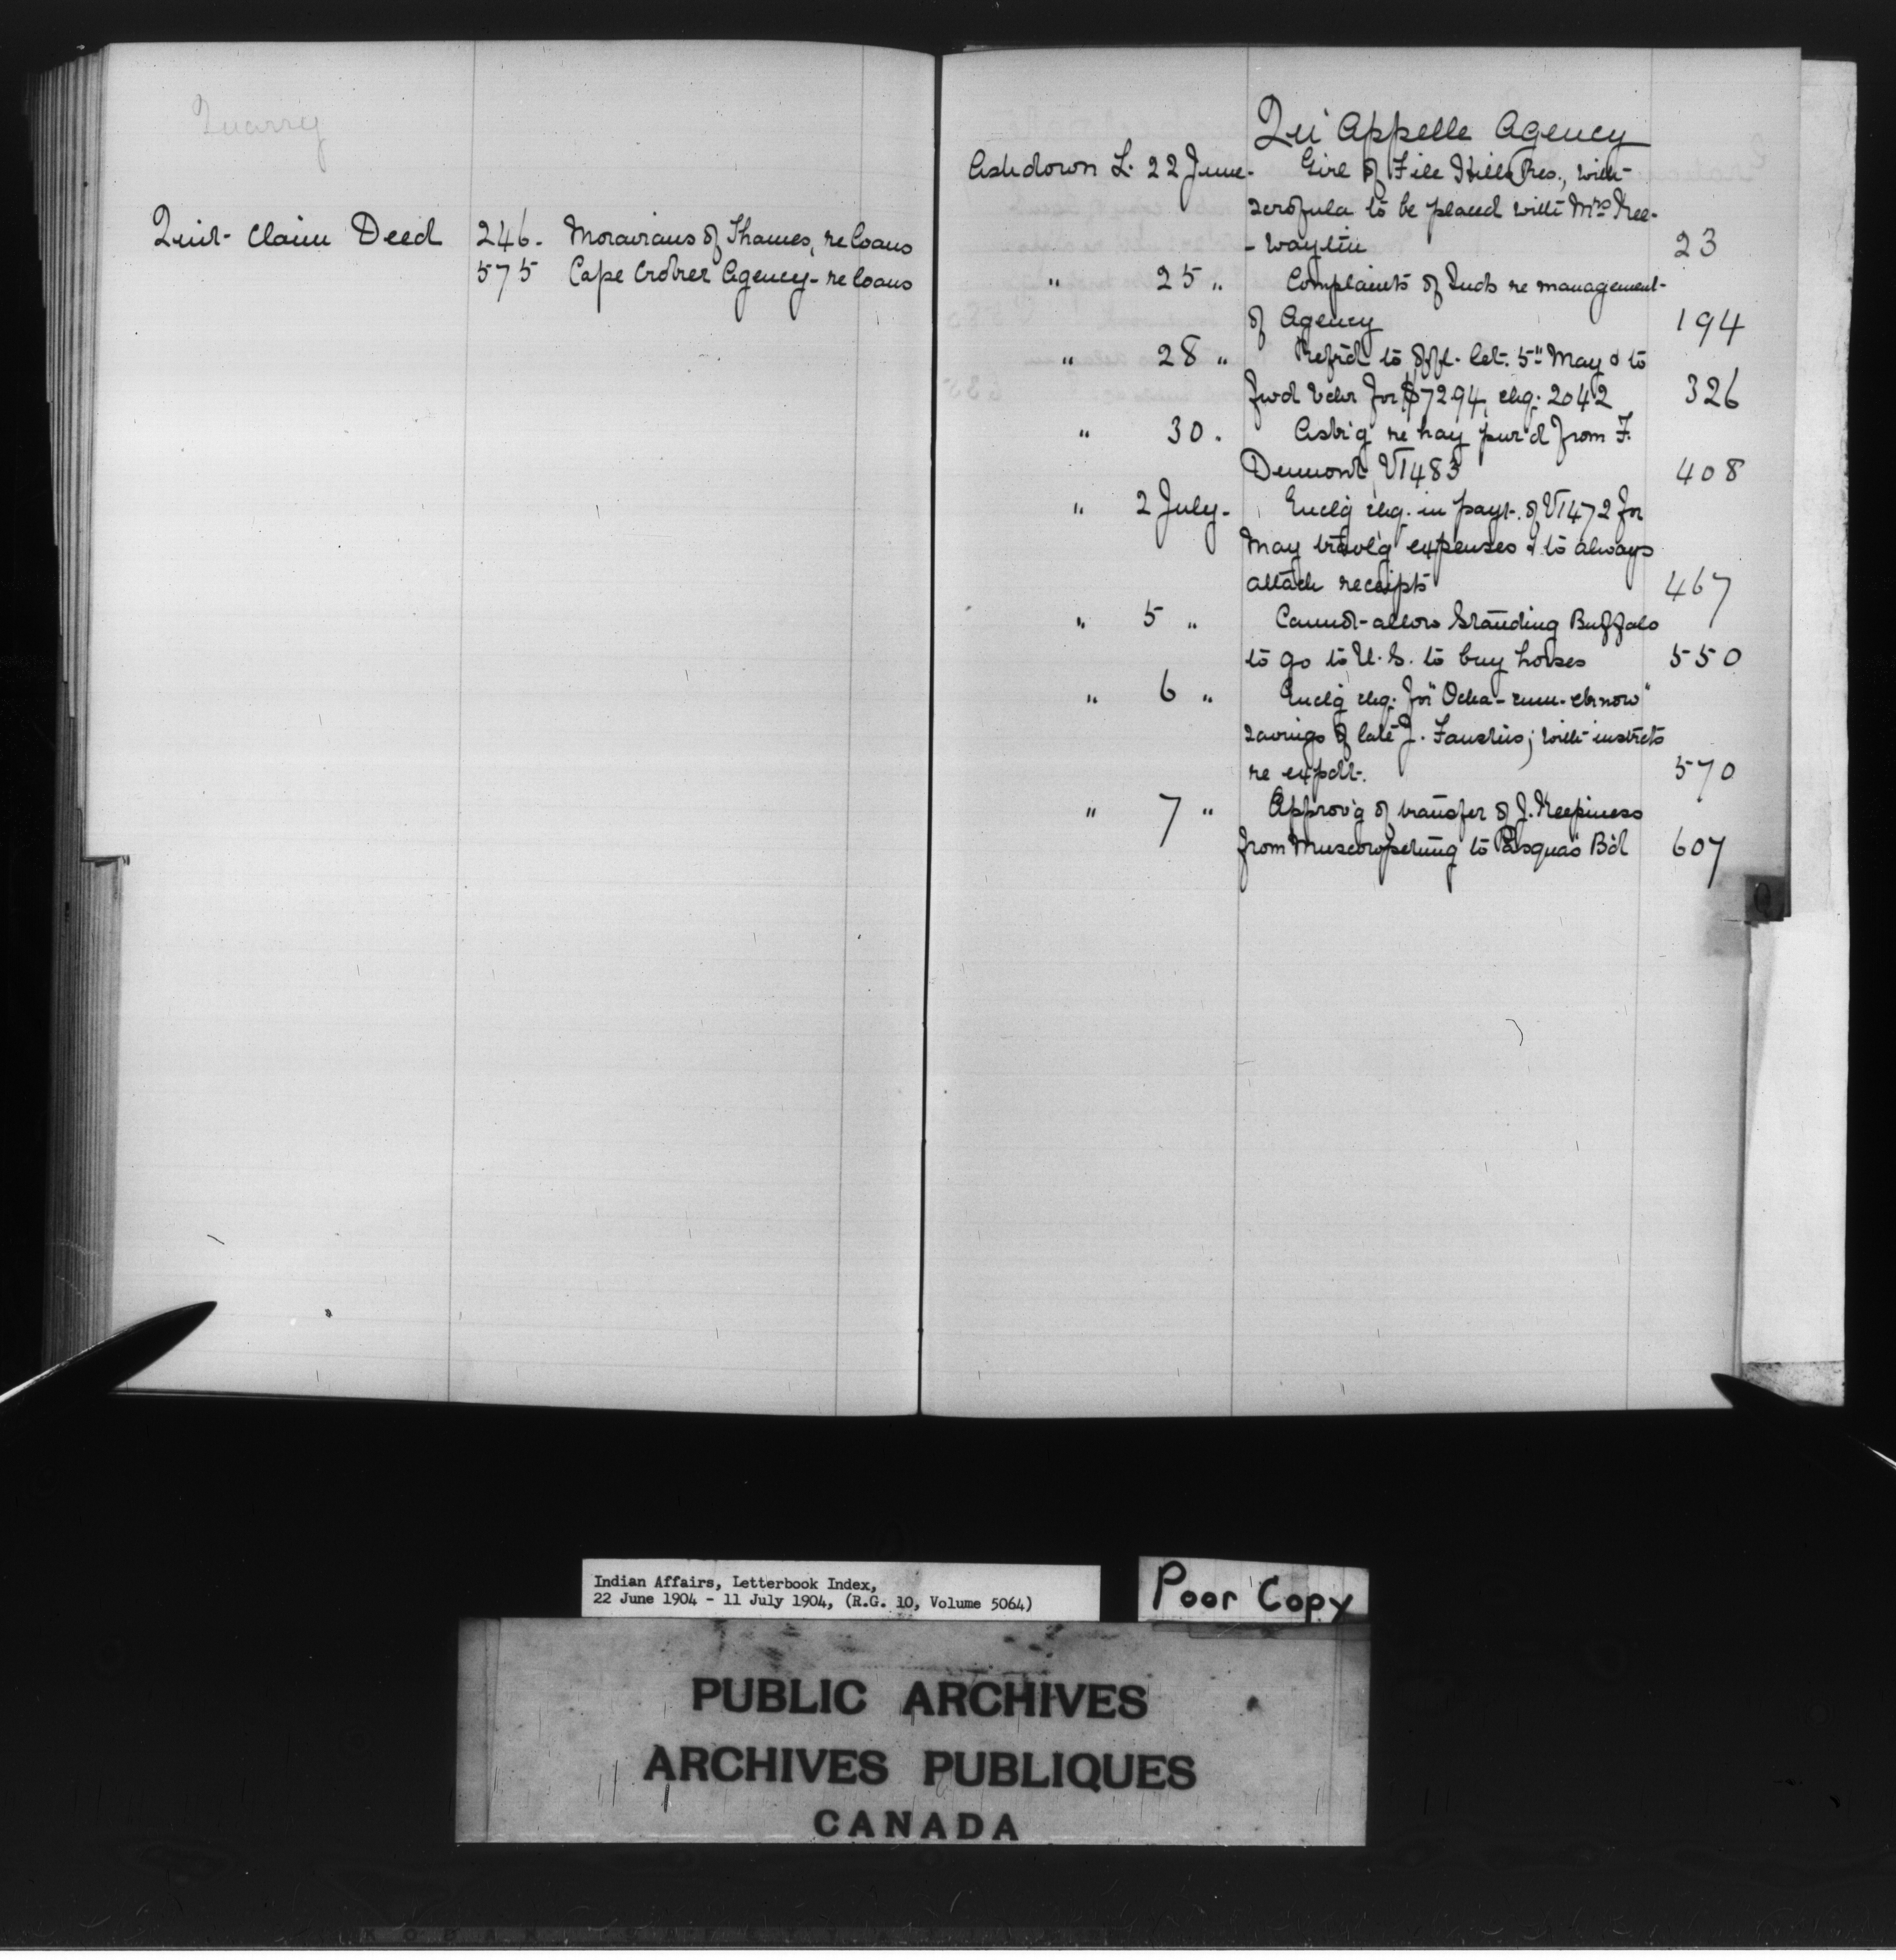 Quarry
Quit-Claim Deed 246- Moravians of Thames, re loans
575 Cape Croker Agency- re loans
Qu'Appelle Agency
Ashdown L. 22 June- Girl of File Hills Res., with
scrofula to be placed with Mrs Kee-
-waytin 23
" 25 " Complaints of Inds re management
of Agency 194
" 28 " Refr'd to offl. let. 5" May & to
fwd vchr for $72.94, chq. 2042 326
" 30. Ask'g re hay pur'd from F.
Dumont, V1483 408
" 2 July- Enclg chq. in payt. of V1472 for
May travl'g expenses & to always
attach receipts 467
" 5 " Cannot allow Standing Buffalo
to go to U.S. to buy horses 550
" 6 " Enclg chq. for
savings of late J. ; with instrcts
re expdt. 570
" 7 " Approv'g of transfer of J. Keepiness
from Muscowpetung to Pasqua's B'd 607
Q
Indian Affairs, Letterbook Index,
22 June 1904 - 11 July 1904, (R.G. 10, Volume 5064)
Poor Copy
PUBLIC ARCHIVES
ARCHIVES PUBLIQUES
CANADA